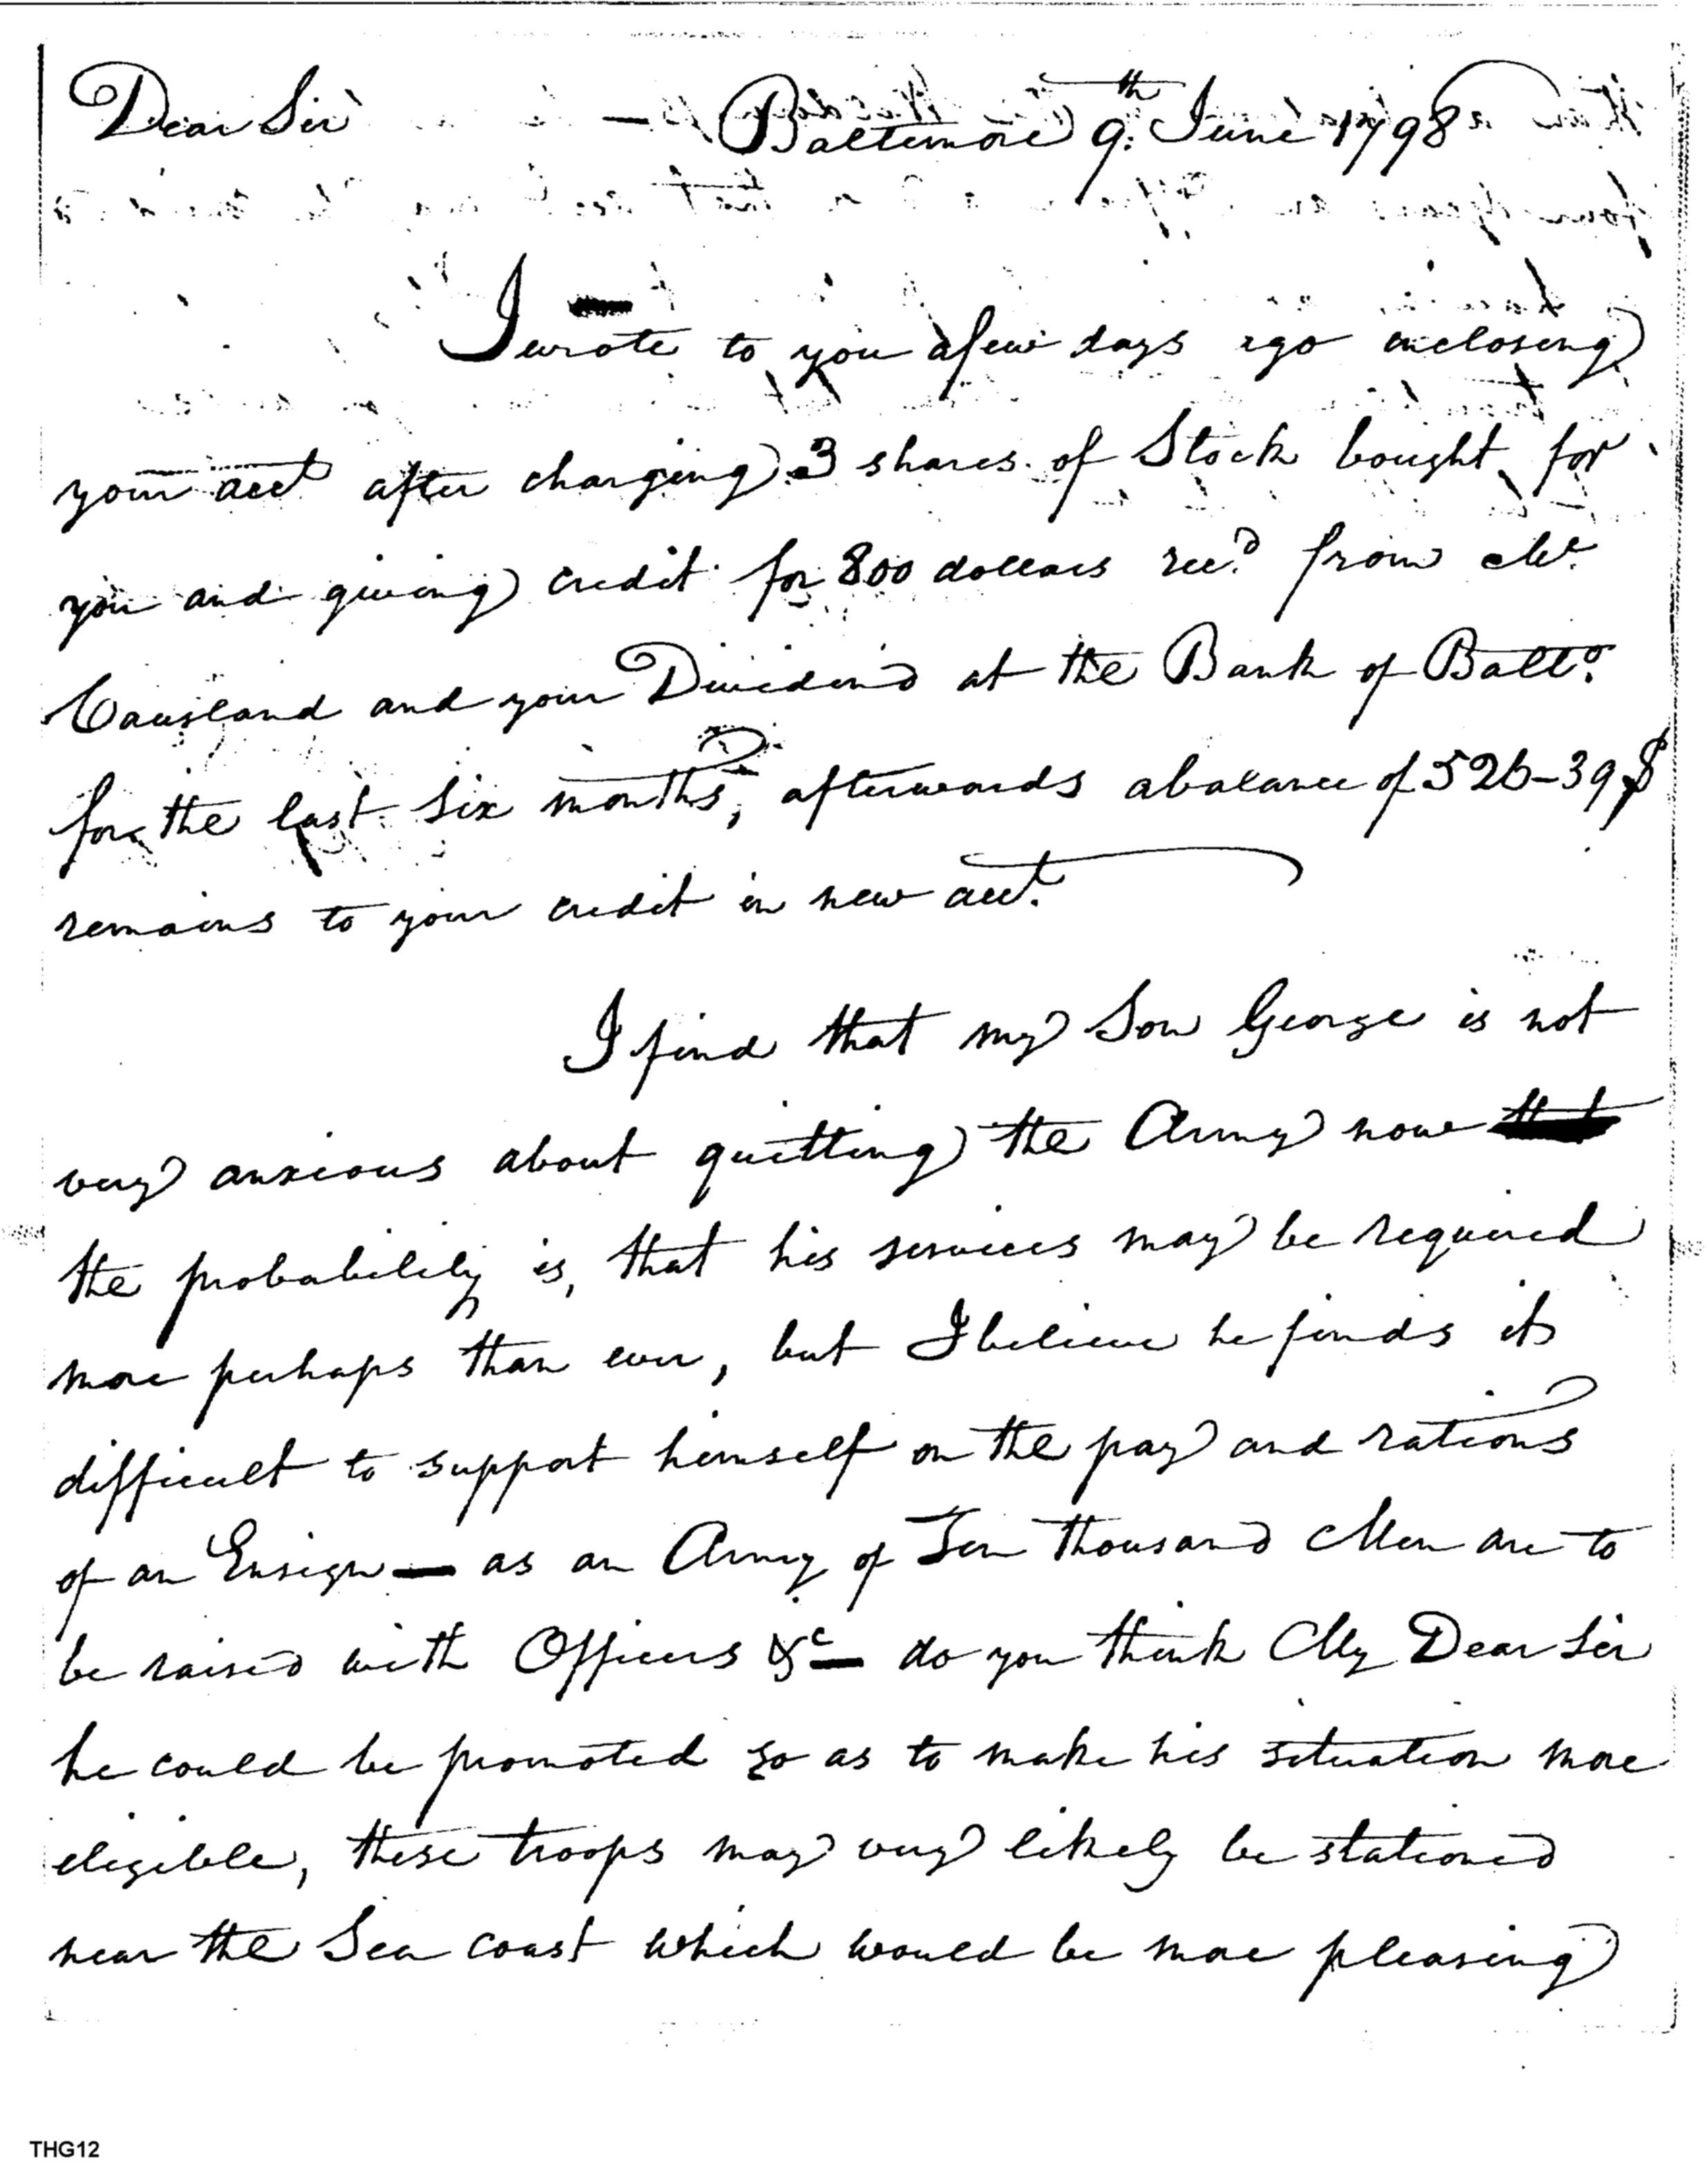 Dear Sir — Baltimore 9th June 1798
I wrote to you a few days ago enclosing
your acct after charging 3 shares of Stock bought for
you and giving credit for 800 dollars recd from Mc
Causland and your Dividend at the Bank of Balto
for the last Six months, afterwards a balance of 526-39 $
remains to your credit in new acct.
I find that my Son George is not
very anxious about quitting the Army now that
the probability is, that his services may be required
more perhaps than ever, but I believe he finds it
difficult to support himself on the pay and rations
of an Ensign — as an Army of Ten thousand Men are to
be raised with Officers &c — do you think My Dear Sir
he could be promoted so as to make his situation more
eligible, these troops may very likely be stationed
near the Sea coast which would be more pleasing
THG12